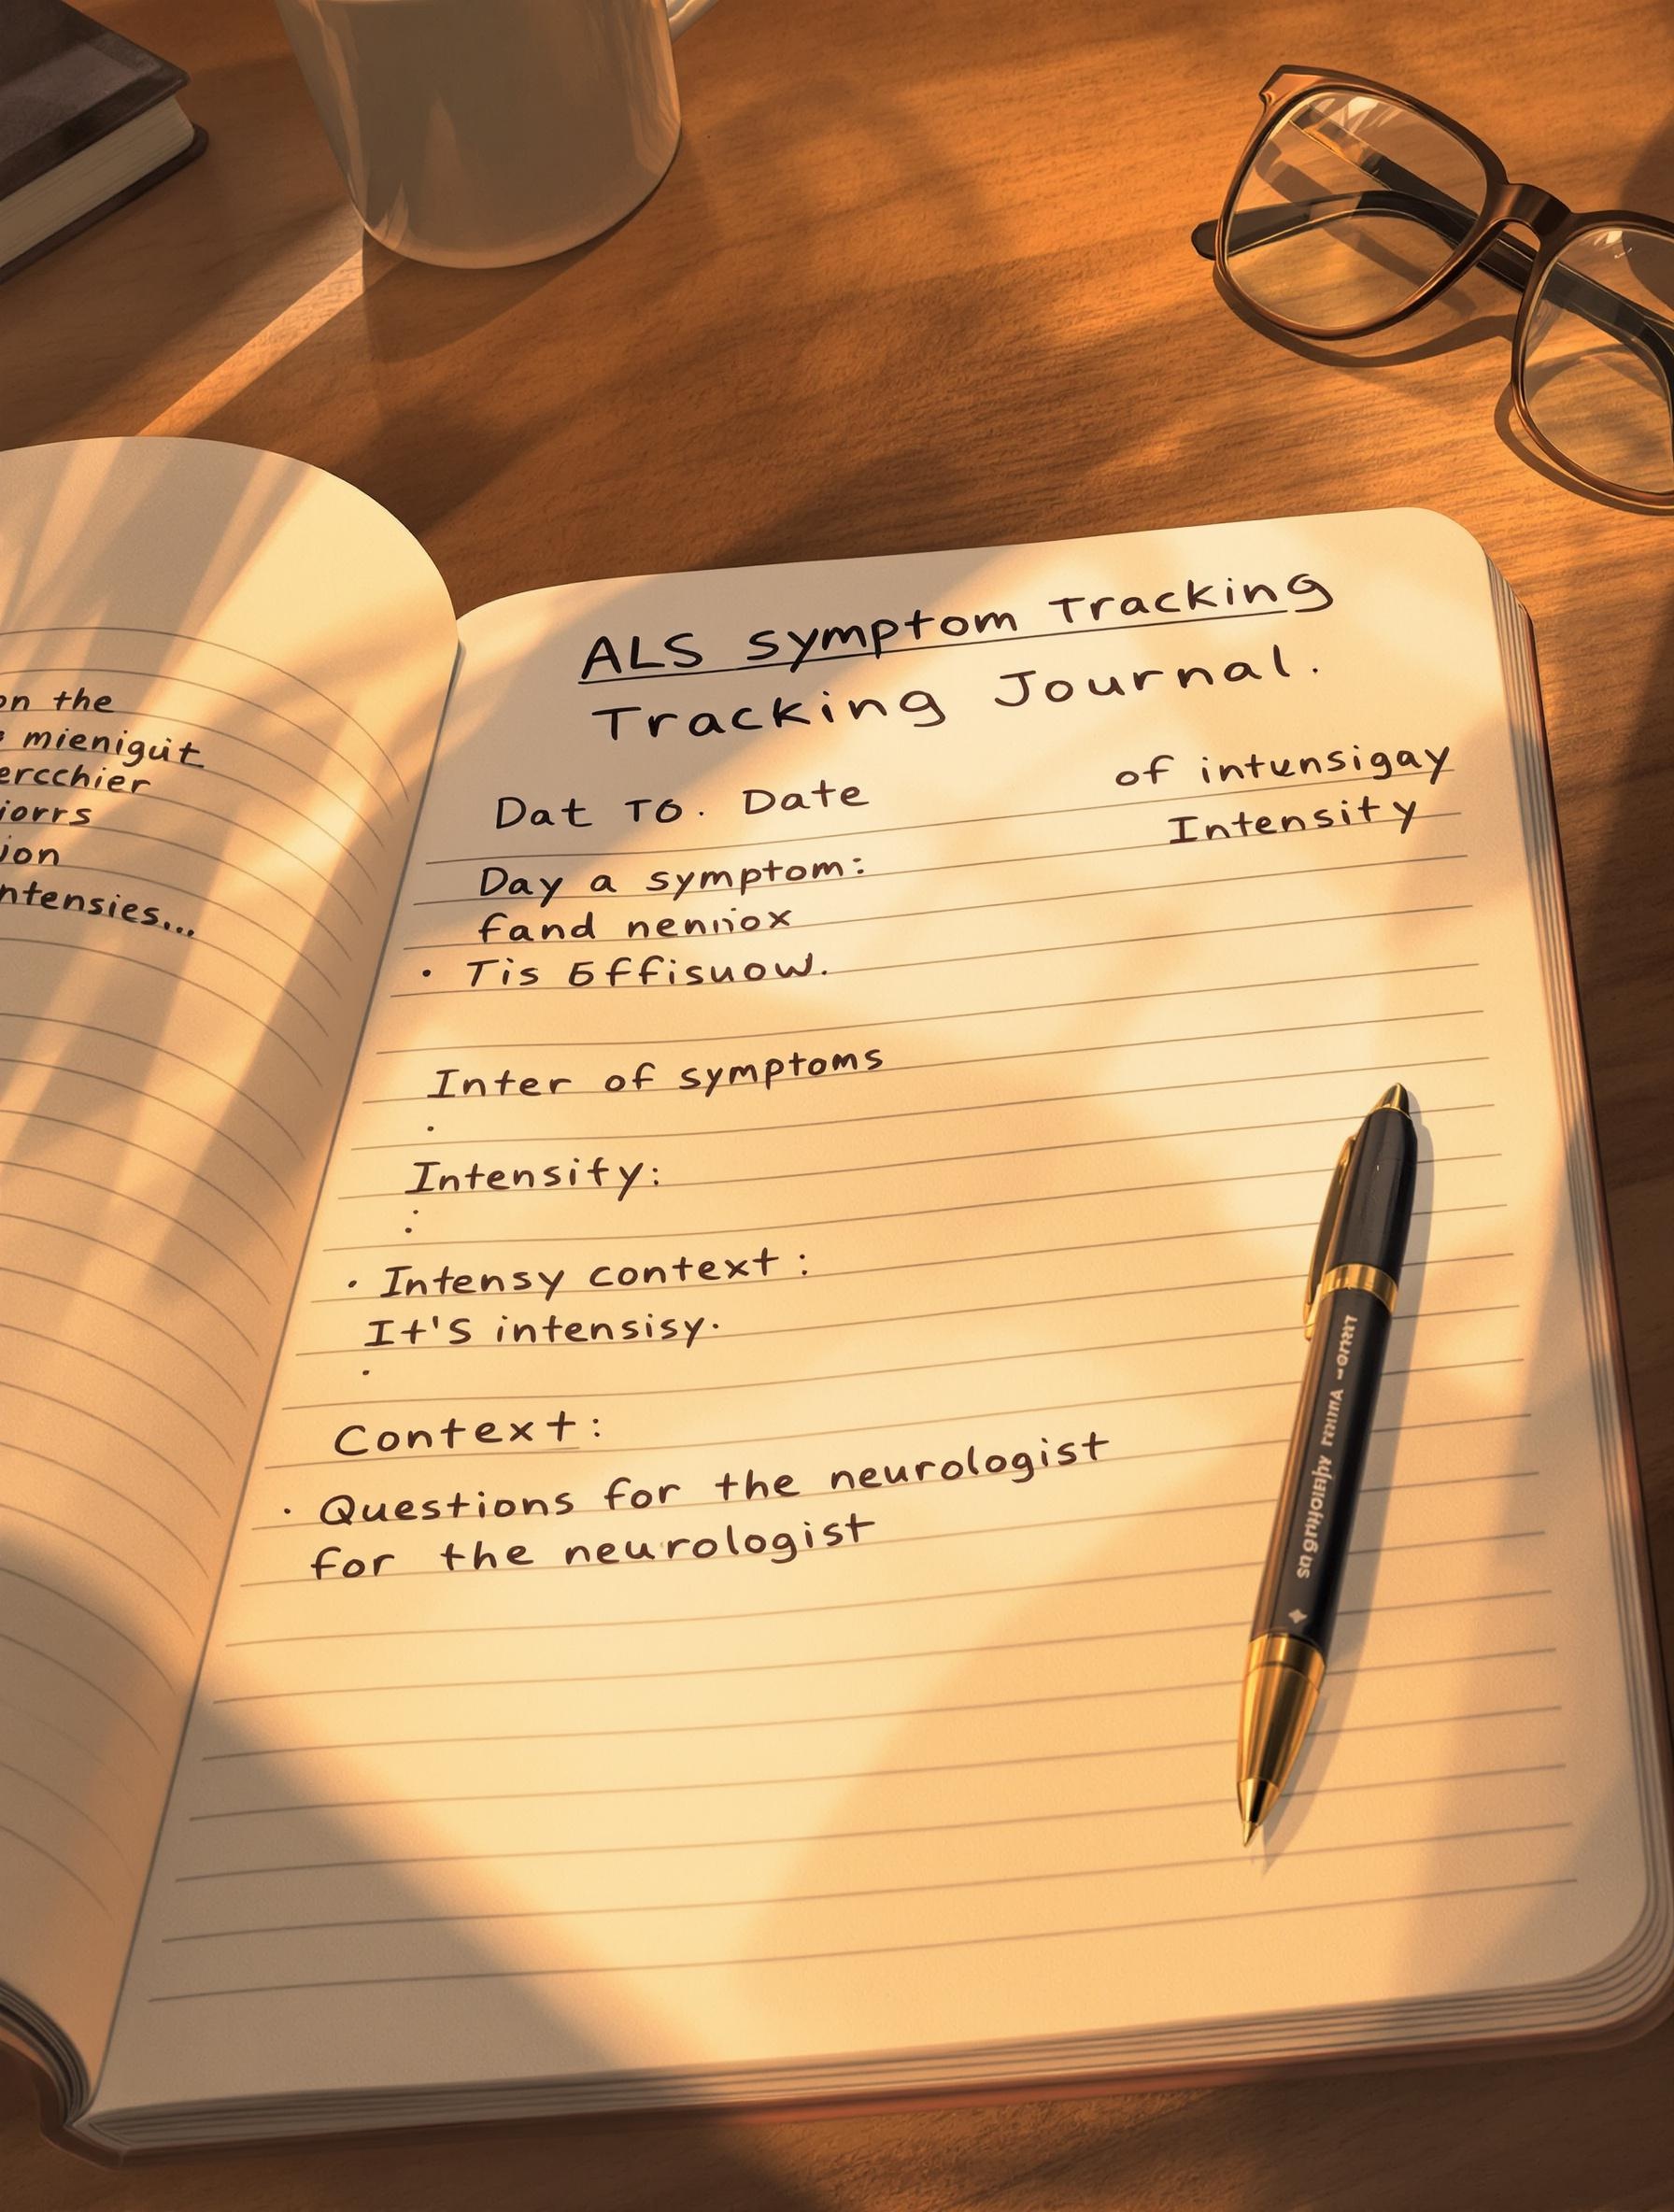 on the
mienigut
ercchier
iorrs
ion
ntensies...
ALS symptom Tracking
Tracking Journal.
Dat To. Date
of intunsigay
Intensity
Day a symptom:
fand
• Tis Effisuow.
Inter of symptoms
•
Intensify:
:
• Intensy context :
It's intensisy.
•
Context:
• Questions for the neurologist
for the neurologist